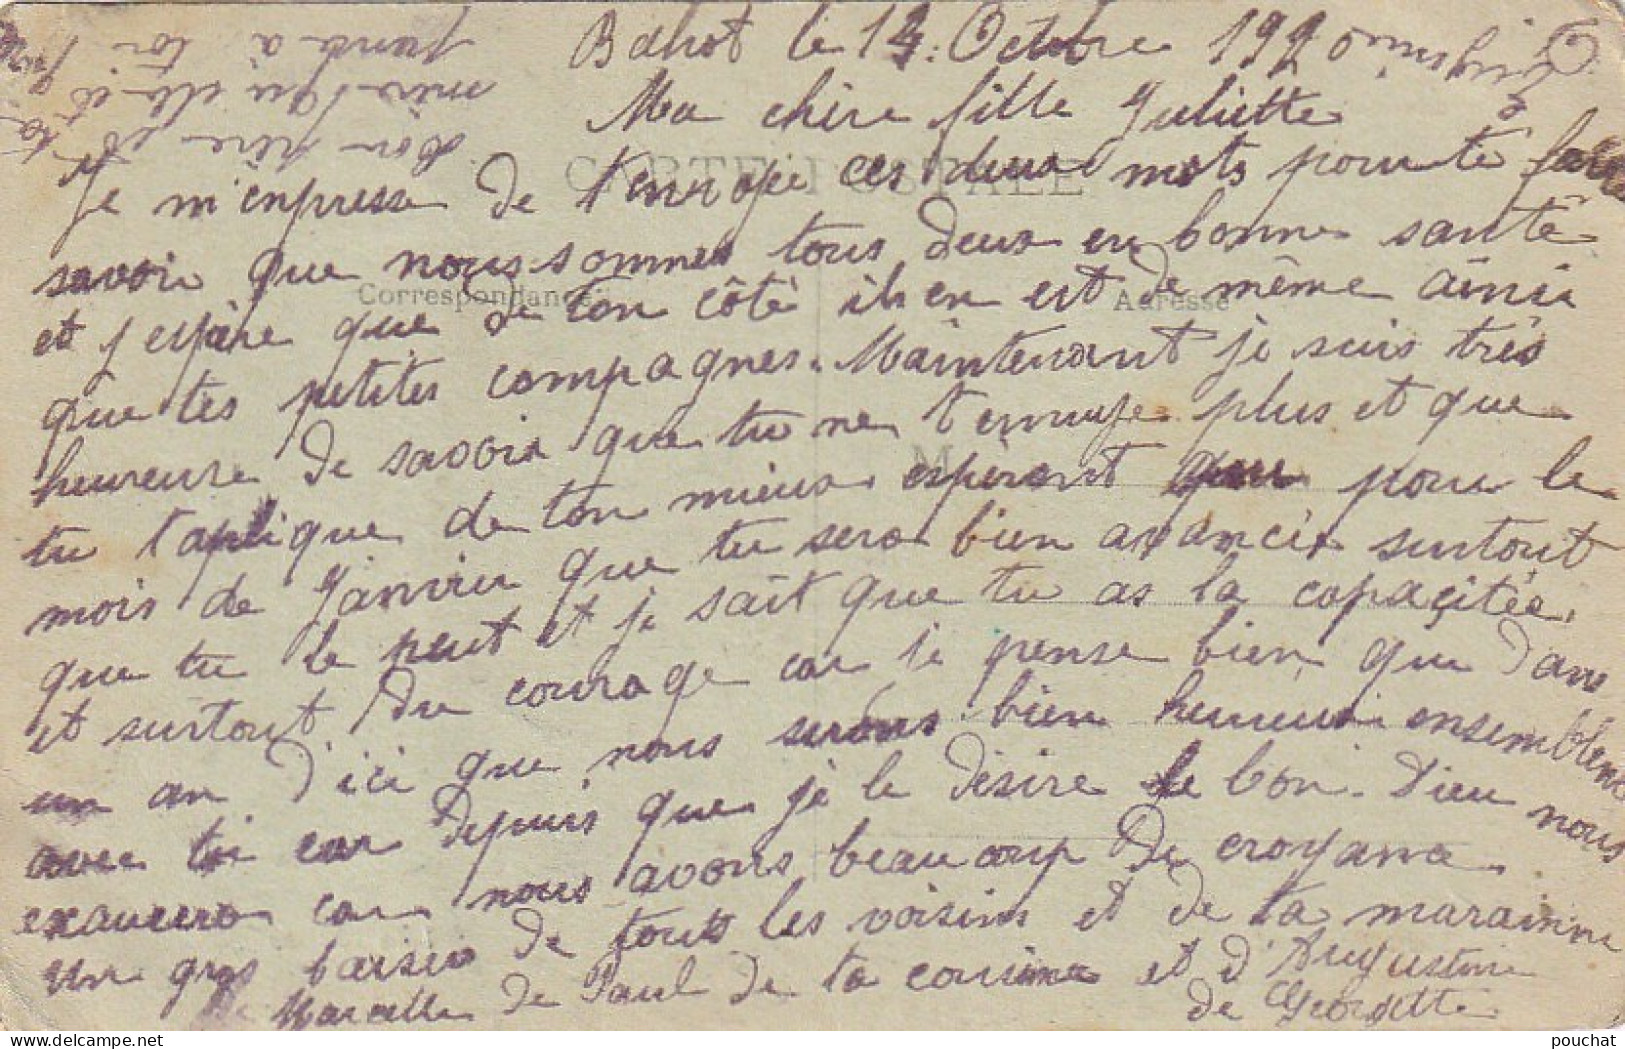 Bahot le 14 Octobre 1920
Ma chère fille Juliette
CARTE POSTALE
Je m'enpresse de t'envoyé ces deux mots pour te faire
savoir que nous sommes tous deux en bonne santé
Correspondance Adresse
et j'espère que de ton côté il en est de même ainsi
que tes petites compagnes. Maintenant je suis très
heureuse de savoir que tu ne t'ennuye plus et que
M
tu t'aplique de ton mieux esperant pour le
mois de Janvier que tu sera bien avancée surtout
que tu le peut et je sait que tu as la capacitée
et surtout du courage car je pense bien que dans
un an d'ici que nous serons bien heureux ensemblent
avec toi car depuis que je le désire le bon Dieu nous
exaucera car nous avons beaucoup de croyance
un gros baiser de touts les voisins et de ta marainne
de Marcelle de Paul de ta cousine et d'Augustine
de Georgette
Ton père et ta
mère qui
pense à toi
pouchat